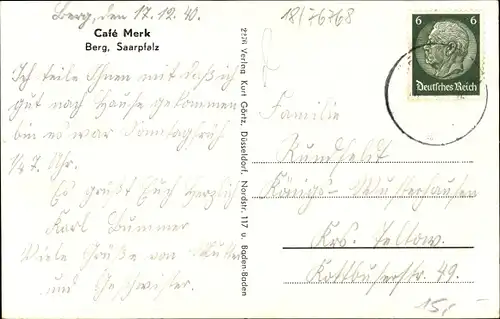 Berg, den 17.12.40.
Café Merk
Berg, Saarpfalz
Ich teile Ihnen mit daß ich
gut nach Hause gekommen
bin es war Sonntagfrüh
1/2 7. Uhr.
Es grüßt Euch herzlich
Karl Bummer
Viele Grüße von Mutter
und Geschwister.
2226 Verlag Kurt Görtz, Düsseldorf, Nordstr. 117 u. Baden-Baden
18/76768
6 6
Deutsches Reich
Familie
Rundheldt
Königs-Wusterhausen
Krs. Teltow.
Kottbuserstr. 49.
15,-